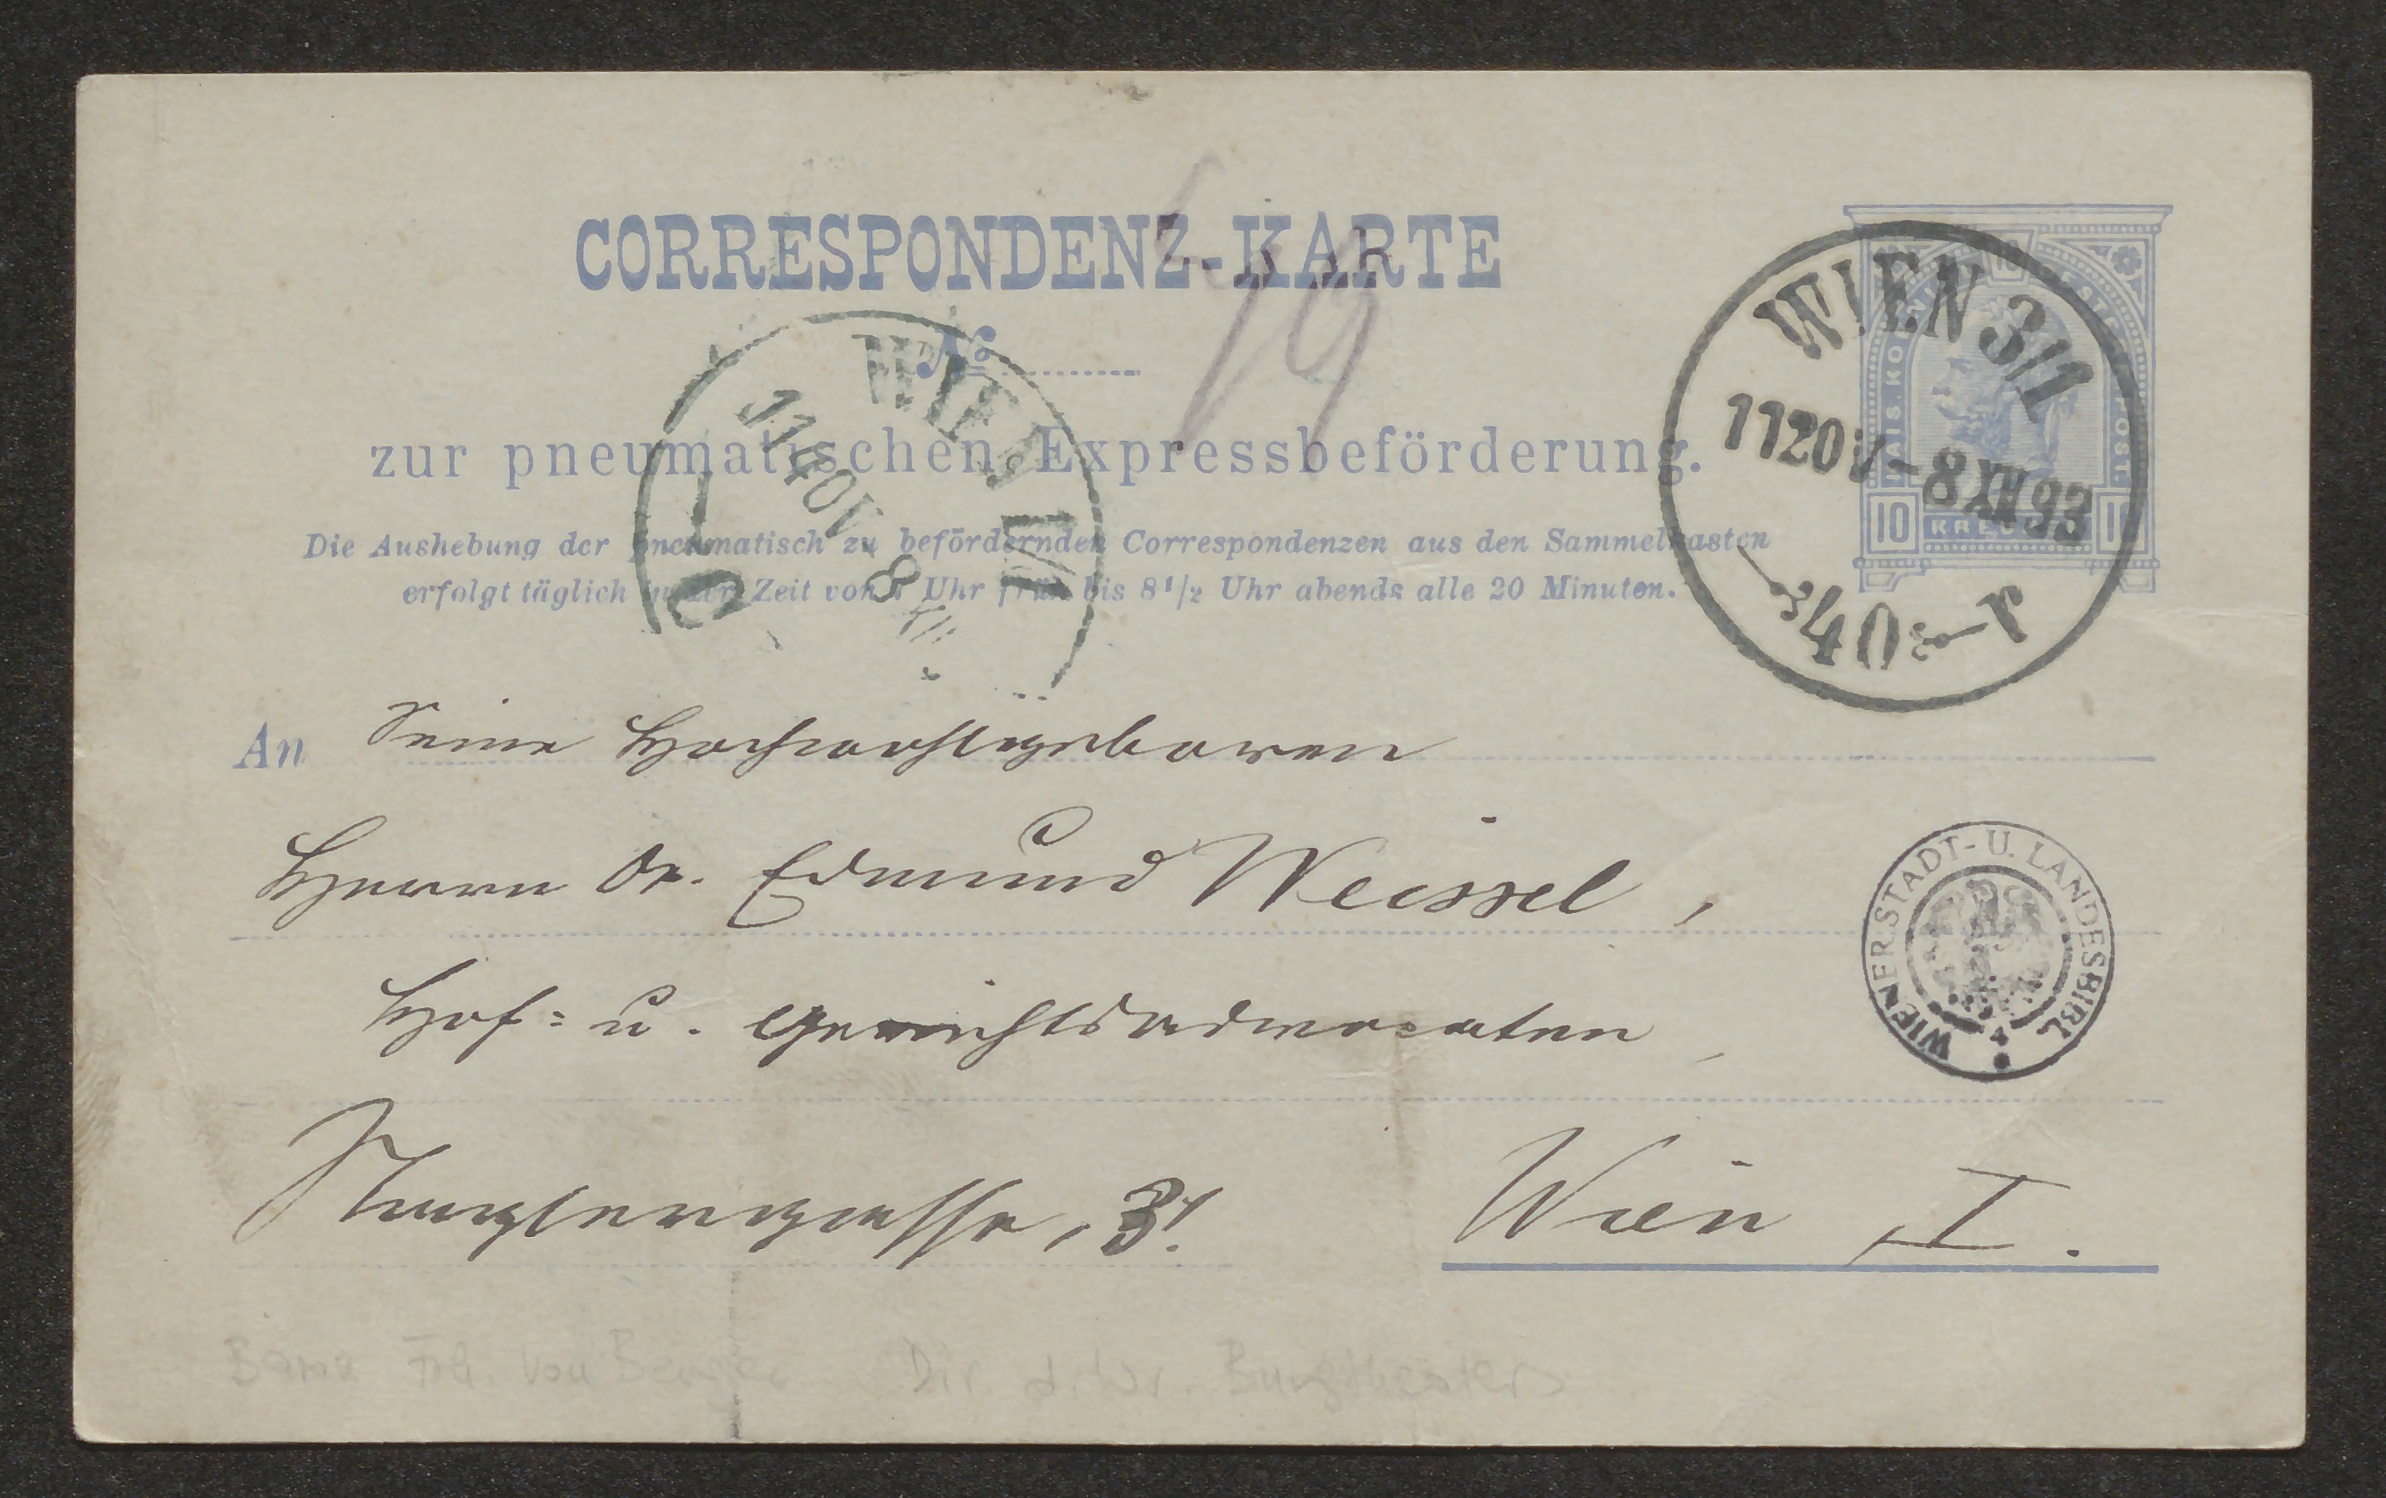 CORRESPONDENZ-KARTE
№
19
zur pneumatischen Expressbeförderung.
Die Aushebung der pneumatisch zu befördernden Correspondenzen aus den Sammelkasten
erfolgt täglich in der Zeit von Uhr früh bis 8 1/2 Uhr abends alle 20 Minuten.
WIEN 3/1
11 20 V - 8 XII 93
40 r
WIEN
11 40 V
8 XII
KAIS. KOENIGL. OESTERR. POST.
10 KREUZER 10
An Seine Hochwohlgeboren
Herrn Dr. Edmund Weissel,
Hof= u. Gerichtsadvocaten,
Naglergasse, 31. Wien I.
WIENER STADT- U. LANDESBIBL.
Frh. von Berger Dir d. Burgtheaters